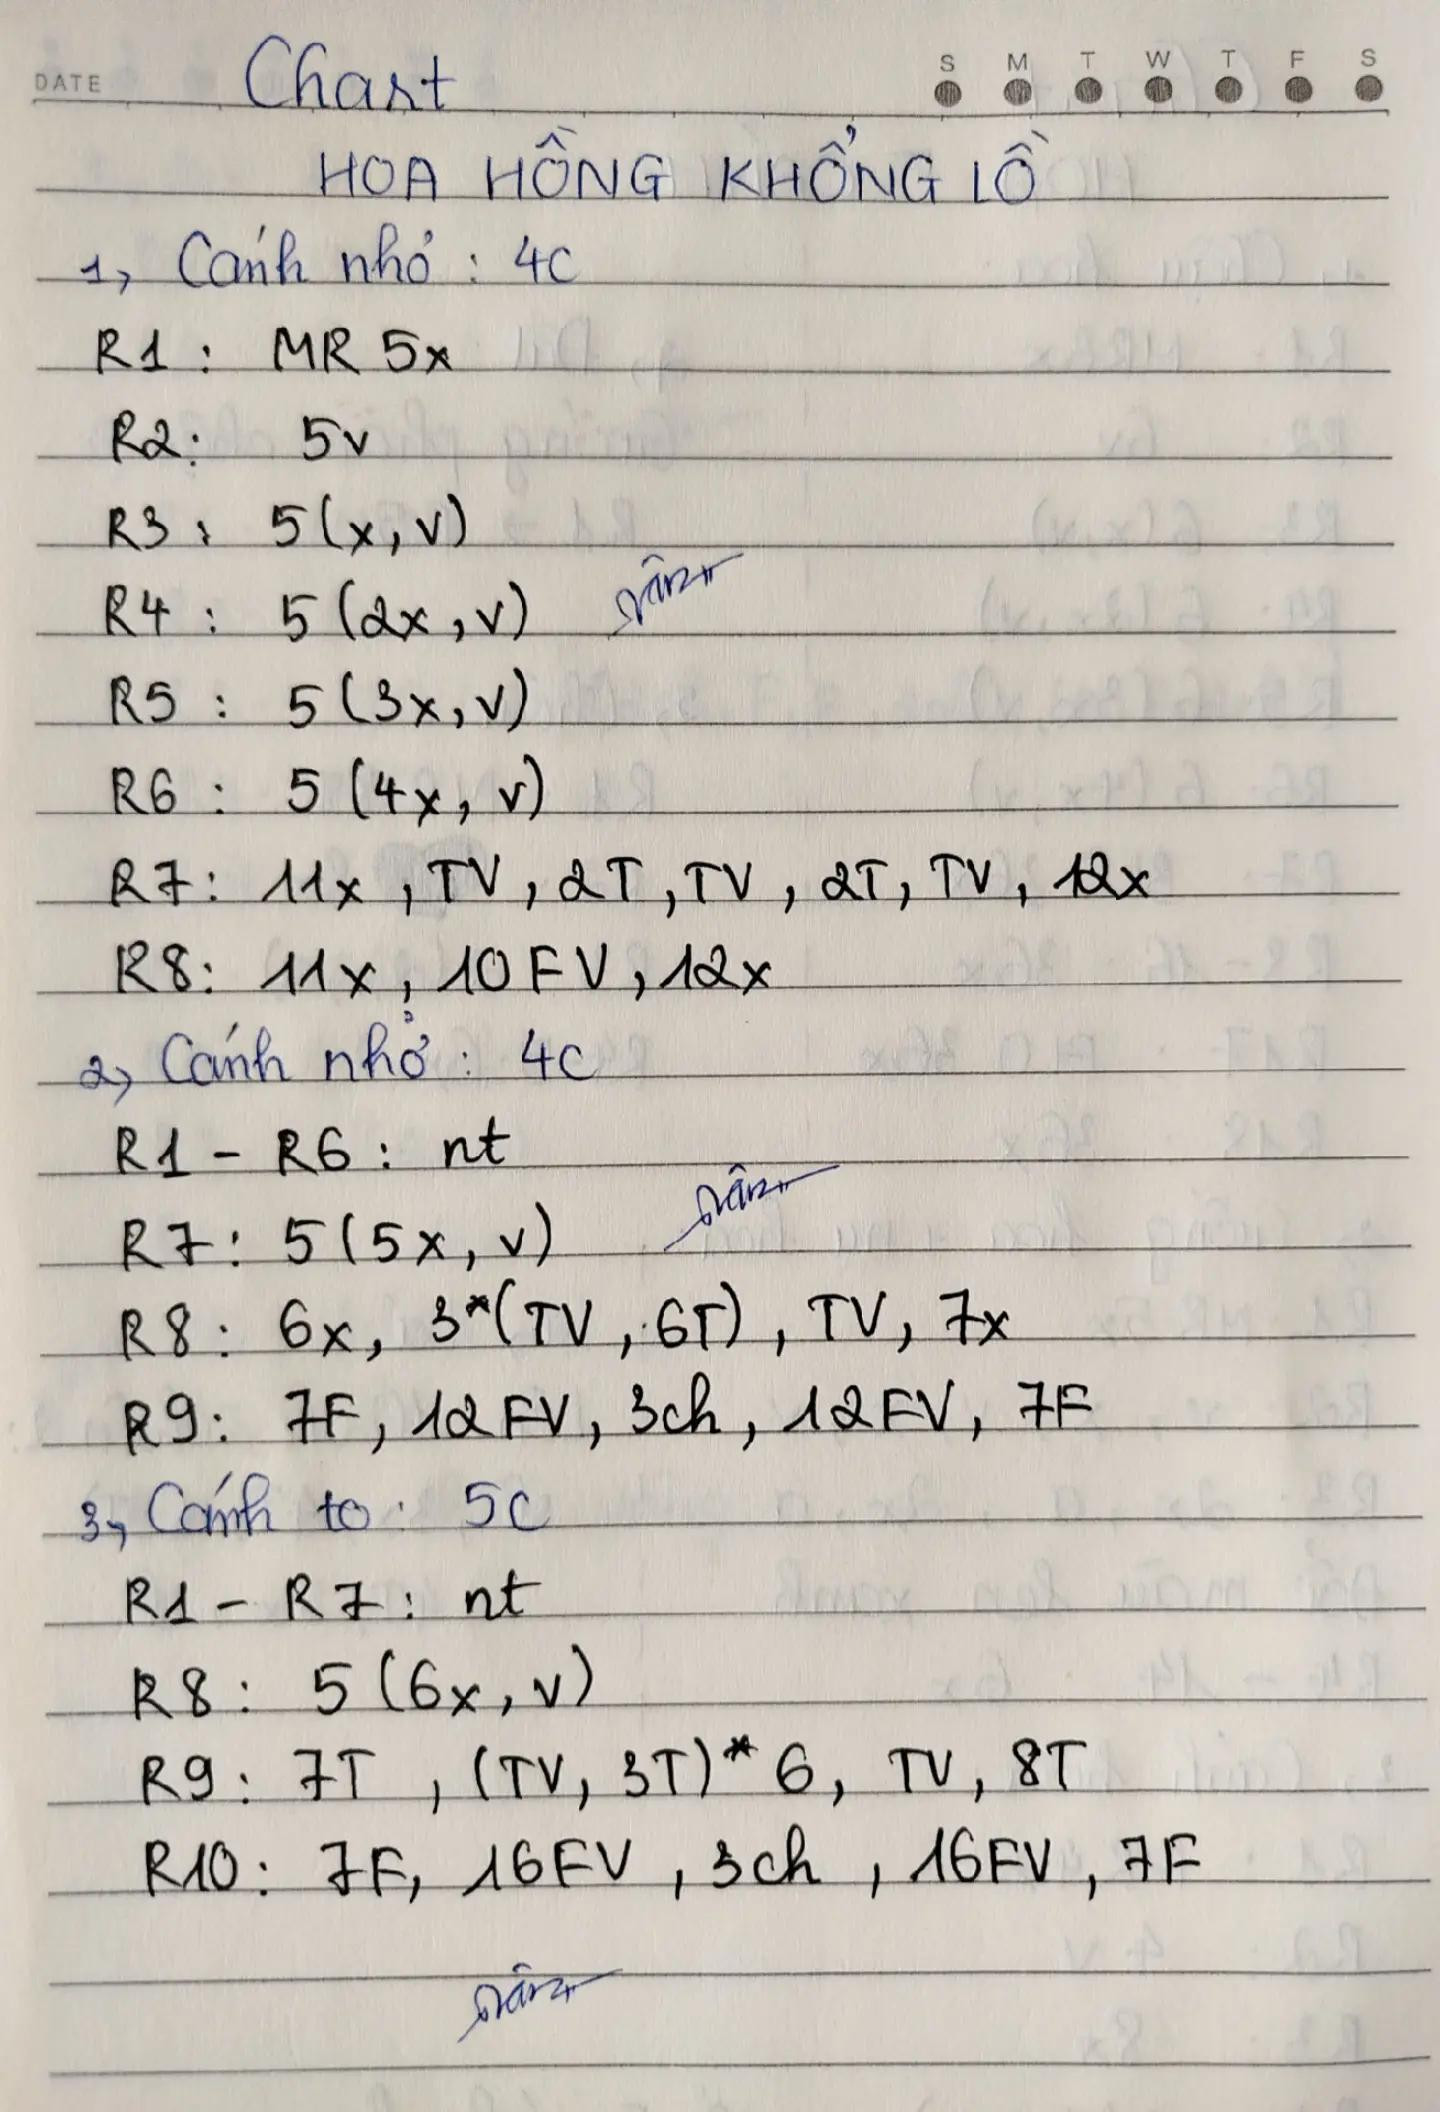 DATE Chart S M T W T F S
HOA HỒNG KHỔNG LỒ
1, Cánh nhỏ : 4C
R1 : MR 5x
R2: 5v
R3 : 5(x, v)
R4 : 5(2x, v)
R5 : 5(3x, v)
R6 : 5(4x, v)
R7: 11x, TV, 2T, TV, 2T, TV, 12x
R8: 11x, 10FV, 12x
2, Cánh nhỏ : 4C
R1 - R6 : nt
R7: 5(5x, v)
R8: 6x, 3*(TV, 6T), TV, 7x
R9: 7F, 12FV, 3ch, 12FV, 7F
3, Cánh to : 5C
R1 - R7: nt
R8: 5(6x, v)
R9: 7T, (TV, 3T)*6, TV, 8T
R10: 7F, 16FV, 3ch, 16FV, 7F